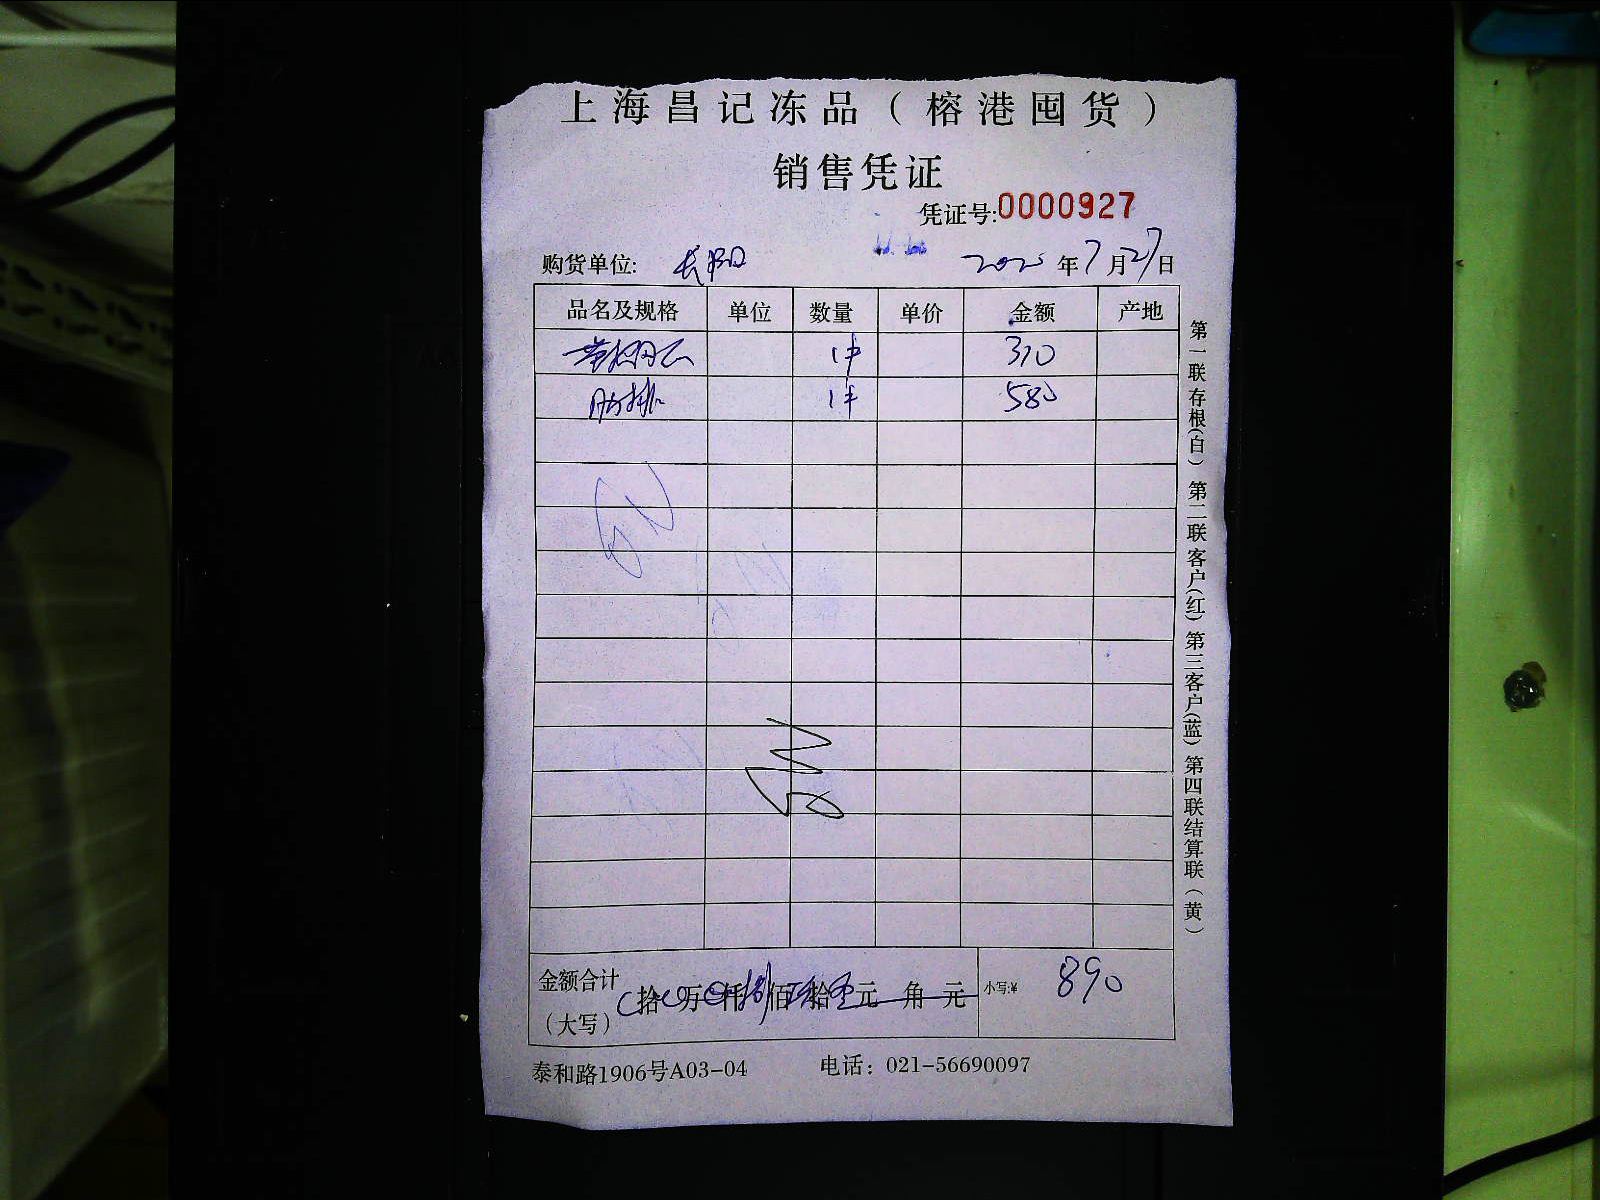 上海昌记冻品（榕港囤货）
销售凭证
凭证号:0000927
购货单位: 长阳 2025年7月27日
品名及规格 单位 数量 单价 金额 产地
1件 310
肋排 1件 580
金额合计 拾 万 仟 捌佰 玖拾 零元 角 元 小写:¥ 890
（大写）
泰和路1906号A03-04 电话：021-56690097
第一联存根(白) 第二联客户(红) 第三客户(蓝) 第四联结算联(黄)